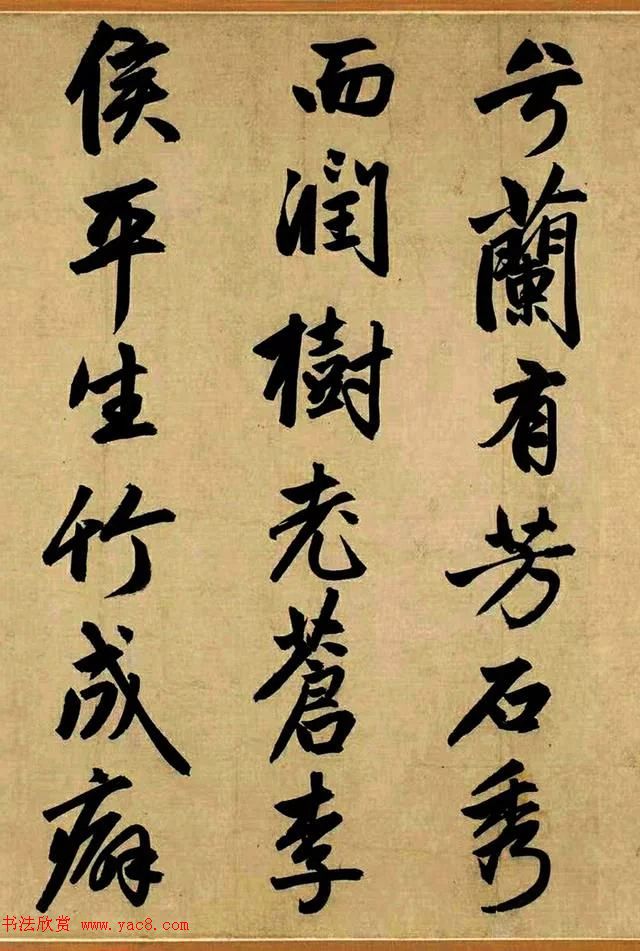 兮蘭有芳石秀
而潤樹老蒼李
侯平生竹成癖
书法欣赏 www.yac8.com